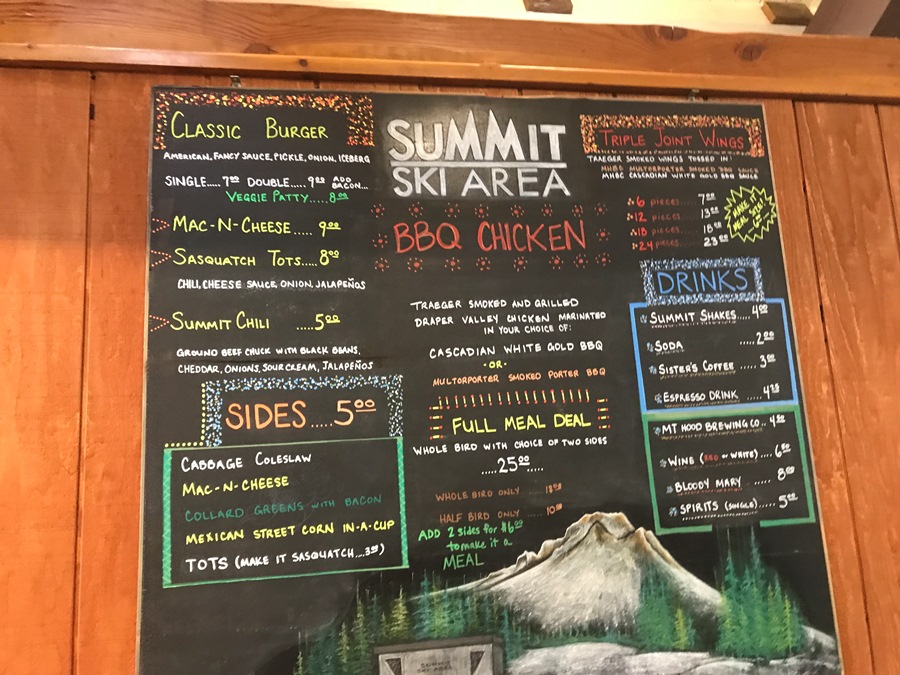 CLASSIC BURGER
AMERICAN, FANCY SAUCE, PICKLE, ONION, ICEBERG
SINGLE.....7⁰⁰ DOUBLE.....9⁰⁰ ADD BACON...
VEGGIE PATTY.....8⁰⁰
MAC-N-CHEESE..... 9⁰⁰
SASQUATCH TOTS.....8⁰⁰
CHILI, CHEESE SAUCE, ONION, JALAPEÑOS
SUMMIT CHILI .....5⁰⁰
GROUND BEEF CHUCK WITH BLACK BEANS,
CHEDDAR, ONIONS, SOUR CREAM, JALAPEÑOS
SIDES.....5⁰⁰
CABBAGE COLESLAW
MAC-N-CHEESE
COLLARD GREENS WITH BACON
MEXICAN STREET CORN IN-A-CUP
TOTS (MAKE IT SASQUATCH...3⁰⁰)
SUMMIT
SKI AREA
BBQ CHICKEN
TRAEGER SMOKED AND GRILLED
DRAPER VALLEY CHICKEN MARINATED
IN YOUR CHOICE OF:
CASCADIAN WHITE GOLD BBQ
-OR-
MULTORPORTER SMOKED PORTER BBQ
FULL MEAL DEAL
WHOLE BIRD WITH CHOICE OF TWO SIDES
.....25⁰⁰.....
WHOLE BIRD ONLY .....18⁰⁰
HALF BIRD ONLY .....10⁰⁰
ADD 2 sides for $6⁰⁰
to make it a
MEAL
TRIPLE JOINT WINGS
TRAEGER SMOKED WINGS TOSSED IN:
MHBC MULTORPORTER SMOKED BBQ SAUCE
MHBC CASCADIAN WHITE GOLD BBQ SAUCE
6 pieces..... 7⁰⁰
12 pieces..... 13⁰⁰
18 pieces..... 18⁰⁰
24 pieces..... 23⁰⁰
MAKE IT
MEAL
DRINKS
SUMMIT SHAKES.... 4⁰⁰
SODA .....2⁰⁰
SISTER'S COFFEE .... 3⁰⁰
ESPRESSO DRINK ....4²⁵
MT HOOD BREWING CO.. 4⁵⁰
WINE (RED or WHITE) .... 6⁵⁰
BLOODY MARY ..... 8⁰⁰
SPIRITS (SINGLE).... 5⁰⁰
SUMMIT
SKI AREA